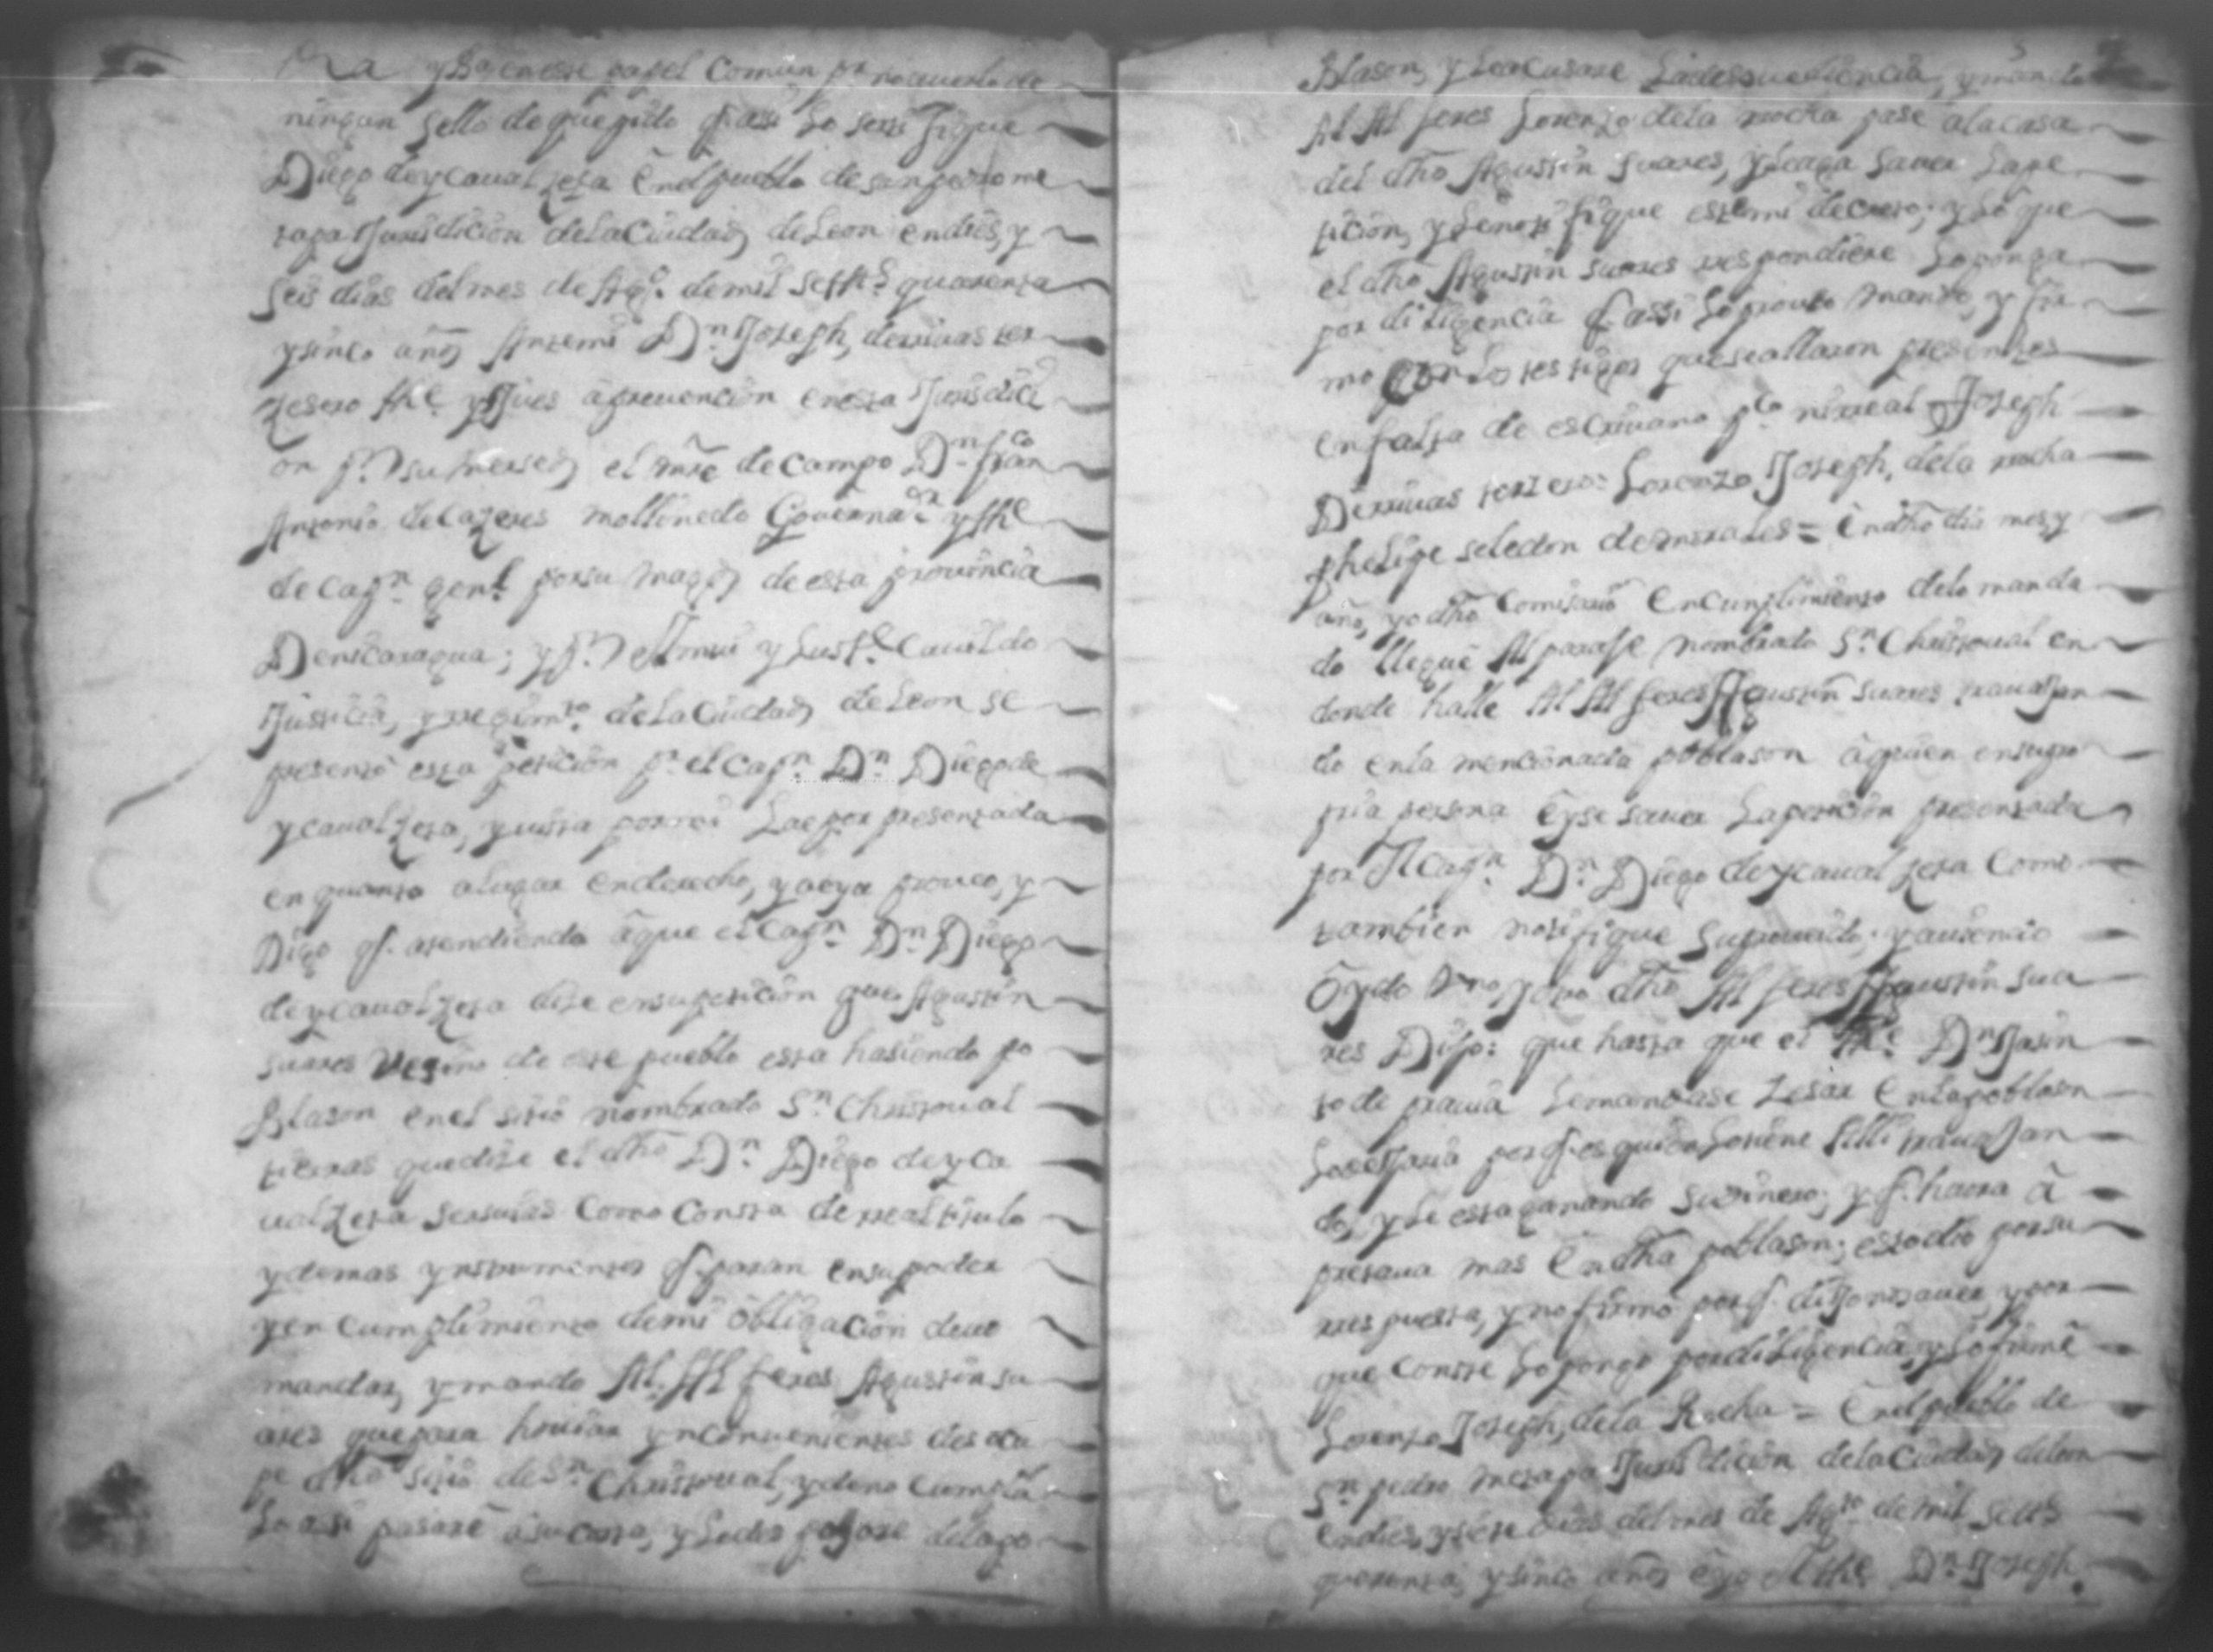 y ba en este papel Comun pr no auerlo de
ningun sello de que pido qe asi lo sertifique
Diego de ycaualzeta En el pueblo de san pedro me
tapa Jurisdicion de la Ciudad de Leon en dies, y
seis dias del mes de Agto. de mil settes. quarenta
y sinco años Ante mi Dn. Joseph, derriuas ter
zero the. y Jues a preuencion en esta Jurisdici
on pr. su merced el mre de campo Dn. franco
Antonio de Cazeres mollinedo Gouernador y the
de Capn. genl. por su Magd de esta prouincia
De nicaragua; y pr. el mui y Lustre. Cauildo
Justicia, y regimto. de la Ciudad de Leon se
presento esta peticion pr. el Capn. Dn. Diego de
ycaualzeta, y uista por mi Lae por presentada
en quanto a lugar en derecho, y aoya proueo, y
Digo qe. atendiendo a que el Capn. Dn. Diego
de ycaualzeta dize en su peticion que Agustin
suares Vezino de este pueblo esta hasiendo po
Blason en el sitio nombrado Sn. Christoual
tierras que dize el dho Dn. Diego de yca
ualzeta ser suias Como Consta de real titulo
y demas ynstrumentos qe. paran en su poder
y en Cumplimiento de mi obligacion deuo
mandar, y mando Al Alferes Agustin su
ares que para heuitar ynconuenientes desocu
pe dho sitio de Sn. Christoual, y de no Cumplir
Lo asi pasare a su costa, y La des de la po
Blason, y Le acusare La desouediencia, y mando
Al Alferes Lorenzo de la rocha pase a la casa
del dho Agustin Suares, y Le aga sauer La pe
ticion, y Le notifique este mi decreto; y Lo que
el dho Agustin suares respondiere Lo ponga
por diligencia qe. assi Lo proueo Mando, y fir
mo Con Los testigos que se allaron presentes
en falta de escriuano pco. ni real Joseph
Derriuas terzero: Lorenzo Joseph, de la rocha
phelipe seledon de morales = En dho dia mes y
año, yo dho Comisario En cunplimiento de lo manda
do llegue Al paraje Nombrado Sn. Christoual en
donde halle Al Alferes Agustin suares trauajan
do en la mencionada poblason a quien en su pro
pria persona Eyse sauer La peticion presentada
por El Capn. Dn. Diego de ycaualzeta Como
tambien notifique su proueido; y auiendo
Oydo dho Alferes Agustin Sua
res Dijo: que hasta que el the. Dn Jasin
to de prauia Le mandase Zesar En la poblason
Lo dejaria por qe. es quien Lo tiene Alli trauajan
do, y Le esta ganando su dinero; y qe. haora a
pretaua mas En dha poblason; esto dio por su
respuesta, y no firmo por qe. dijo no sauer y por
que Conste Lo pongo por diligencia, y Lo firme
Lorenzo Joseph, de la Rocha = En el pueblo de
Sn. pedro Metapa Jurisdicion de la Ciudad de leon
en dies, y siete dias del mes de Agto. de mil setes
quarenta, y sinco años Eyo El the. Dn. Joseph